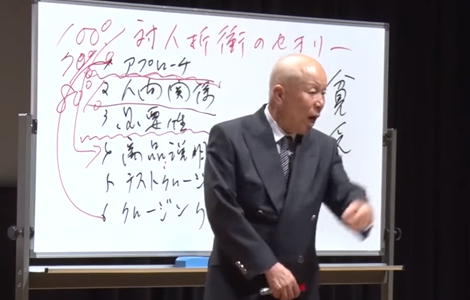 100% 対人折衝のセオリー
アプローチ
2 人間関係
3 必要性
商品説明
テストクロージ
クロージング
貧